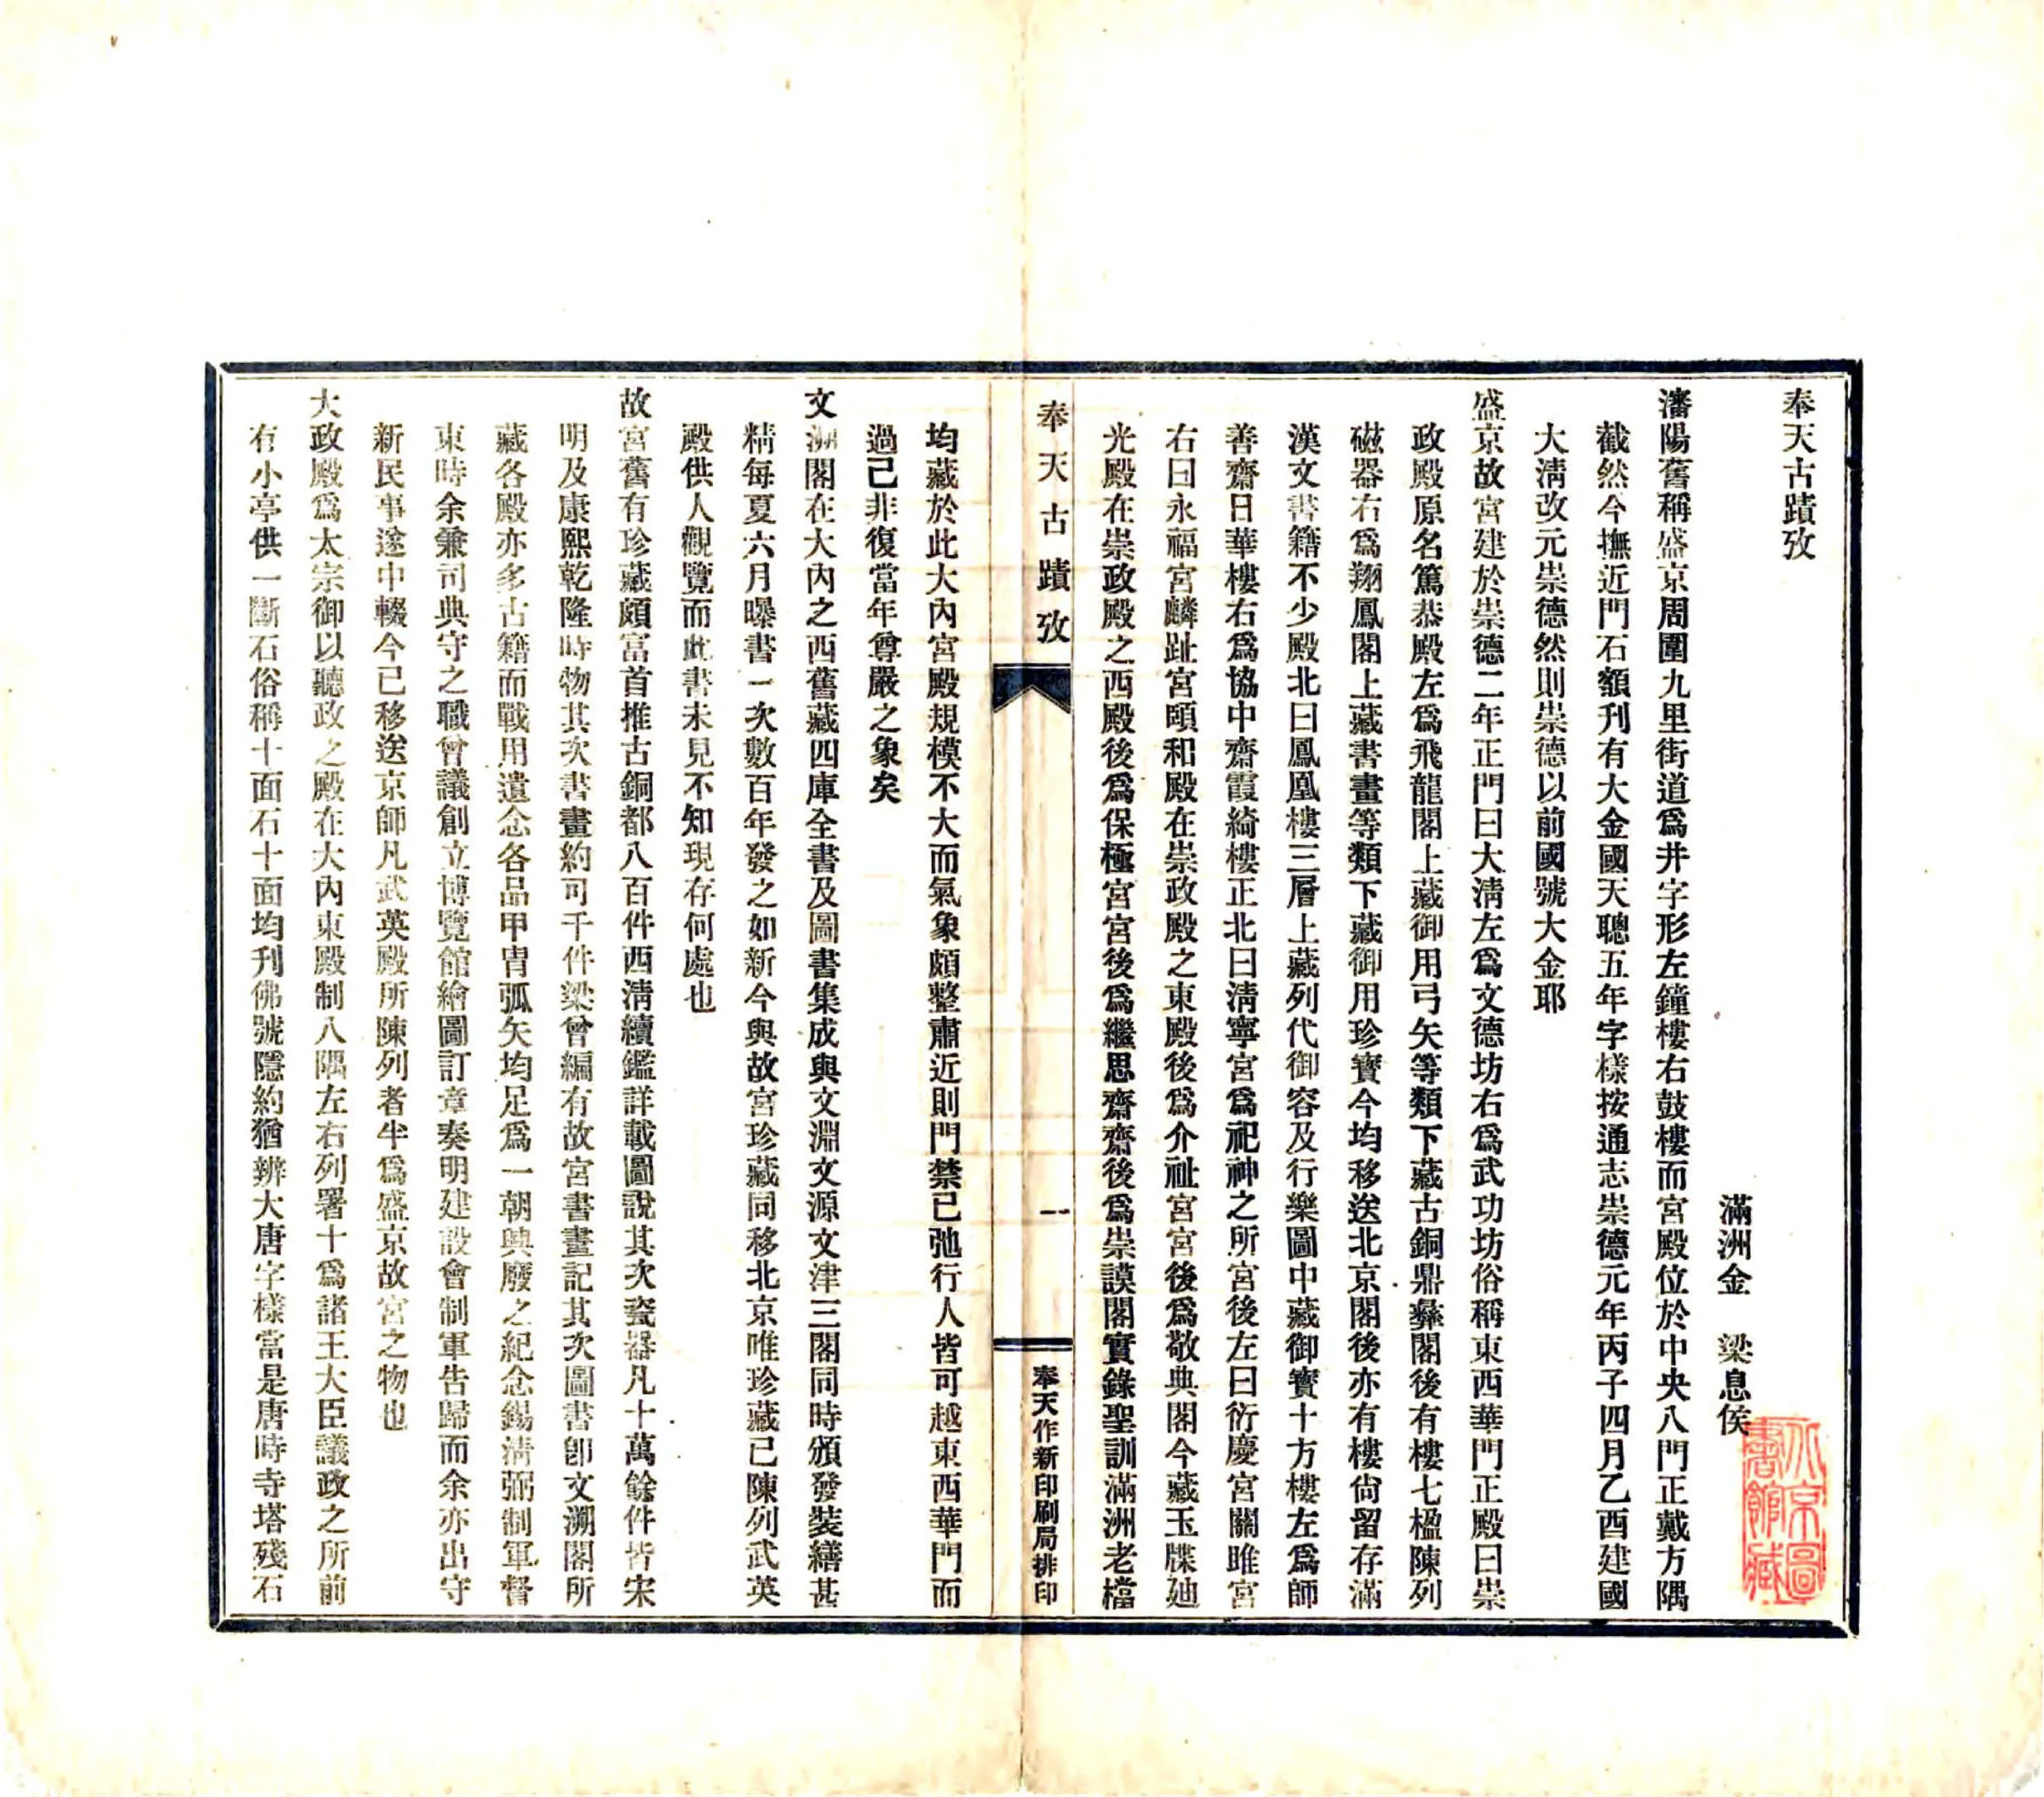 奉天古蹟攷
滿洲金　梁息侯
瀋陽舊稱盛京周圍九里街道爲井字形左鐘樓右鼓樓而宮殿位於中央八門正戴方隅
截然今撫近門石額刊有大金國天聰五年字樣按通志崇德元年丙子四月乙酉建國
大淸改元崇德然則崇德以前國號大金耶
盛京故宮建於崇德二年正門曰大淸左爲文德坊右爲武功坊俗稱東西華門正殿曰崇
政殿原名篤恭殿左爲飛龍閣上藏御用弓矢等類下藏古銅鼎彝閣後有樓七楹陳列
磁器右爲翔鳳閣上藏書畫等類下藏御用珍寳今均移送北京閣後亦有樓尙留存滿
漢文書籍不少殿北曰鳳凰樓三層上藏列代御容及行樂圖中藏御寳十方樓左爲師
善齋日華樓右爲協中齋霞綺樓正北曰淸寧宮爲祀神之所宮後左曰衍慶宮關雎宮
右曰永福宮麟趾宮頤和殿在崇政殿之東殿後爲介祉宮宮後爲敬典閣今藏玉牒廸
光殿在崇政殿之西殿後爲保極宮宮後爲繼思齋齋後爲崇謨閣實錄聖訓滿洲老檔
奉天古蹟攷
一
奉天作新印刷局排印
均藏於此大內宮殿規模不大而氣象頗整肅近則門禁已弛行人皆可越東西華門而
過已非復當年尊嚴之象矣
文溯閣在大內之西舊藏四庫全書及圖書集成與文淵文源文津三閣同時頒發裝繕甚
精每夏六月曝書一次數百年發之如新今與故宮珍藏同移北京唯珍藏已陳列武英
殿供人觀覽而此書未見不知現存何處也
故宮舊有珍藏頗富首推古銅都八百件西淸續鑑詳載圖說其次瓷器凡十萬餘件皆宋
明及康熙乾隆時物其次書畫約可千件梁曾編有故宮書畫記其次圖書卽文溯閣所
藏各殿亦多古籍而戰用遺念各品甲胄弧矢均足爲一朝興廢之紀念錫淸弼制軍督
東時余兼司典守之職曾議創立博覽館繪圖訂章奏明建設會制軍告歸而余亦出守
新民事遂中輟今已移送京師凡武英殿所陳列者半爲盛京故宮之物也
大政殿爲太宗御以聽政之殿在大內東殿制八隅左右列署十爲諸王大臣議政之所前
有小亭供一斷石俗稱十面石十面均刊佛號隱約猶辨大唐字樣當是唐時寺塔殘石